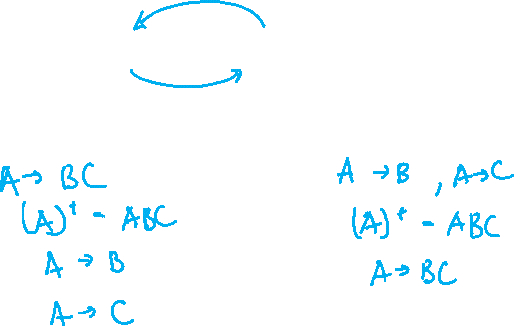 A → BC
(A)⁺ - ABC
A → B
A → C
A → B , A → C
(A)⁺ - ABC
A → BC